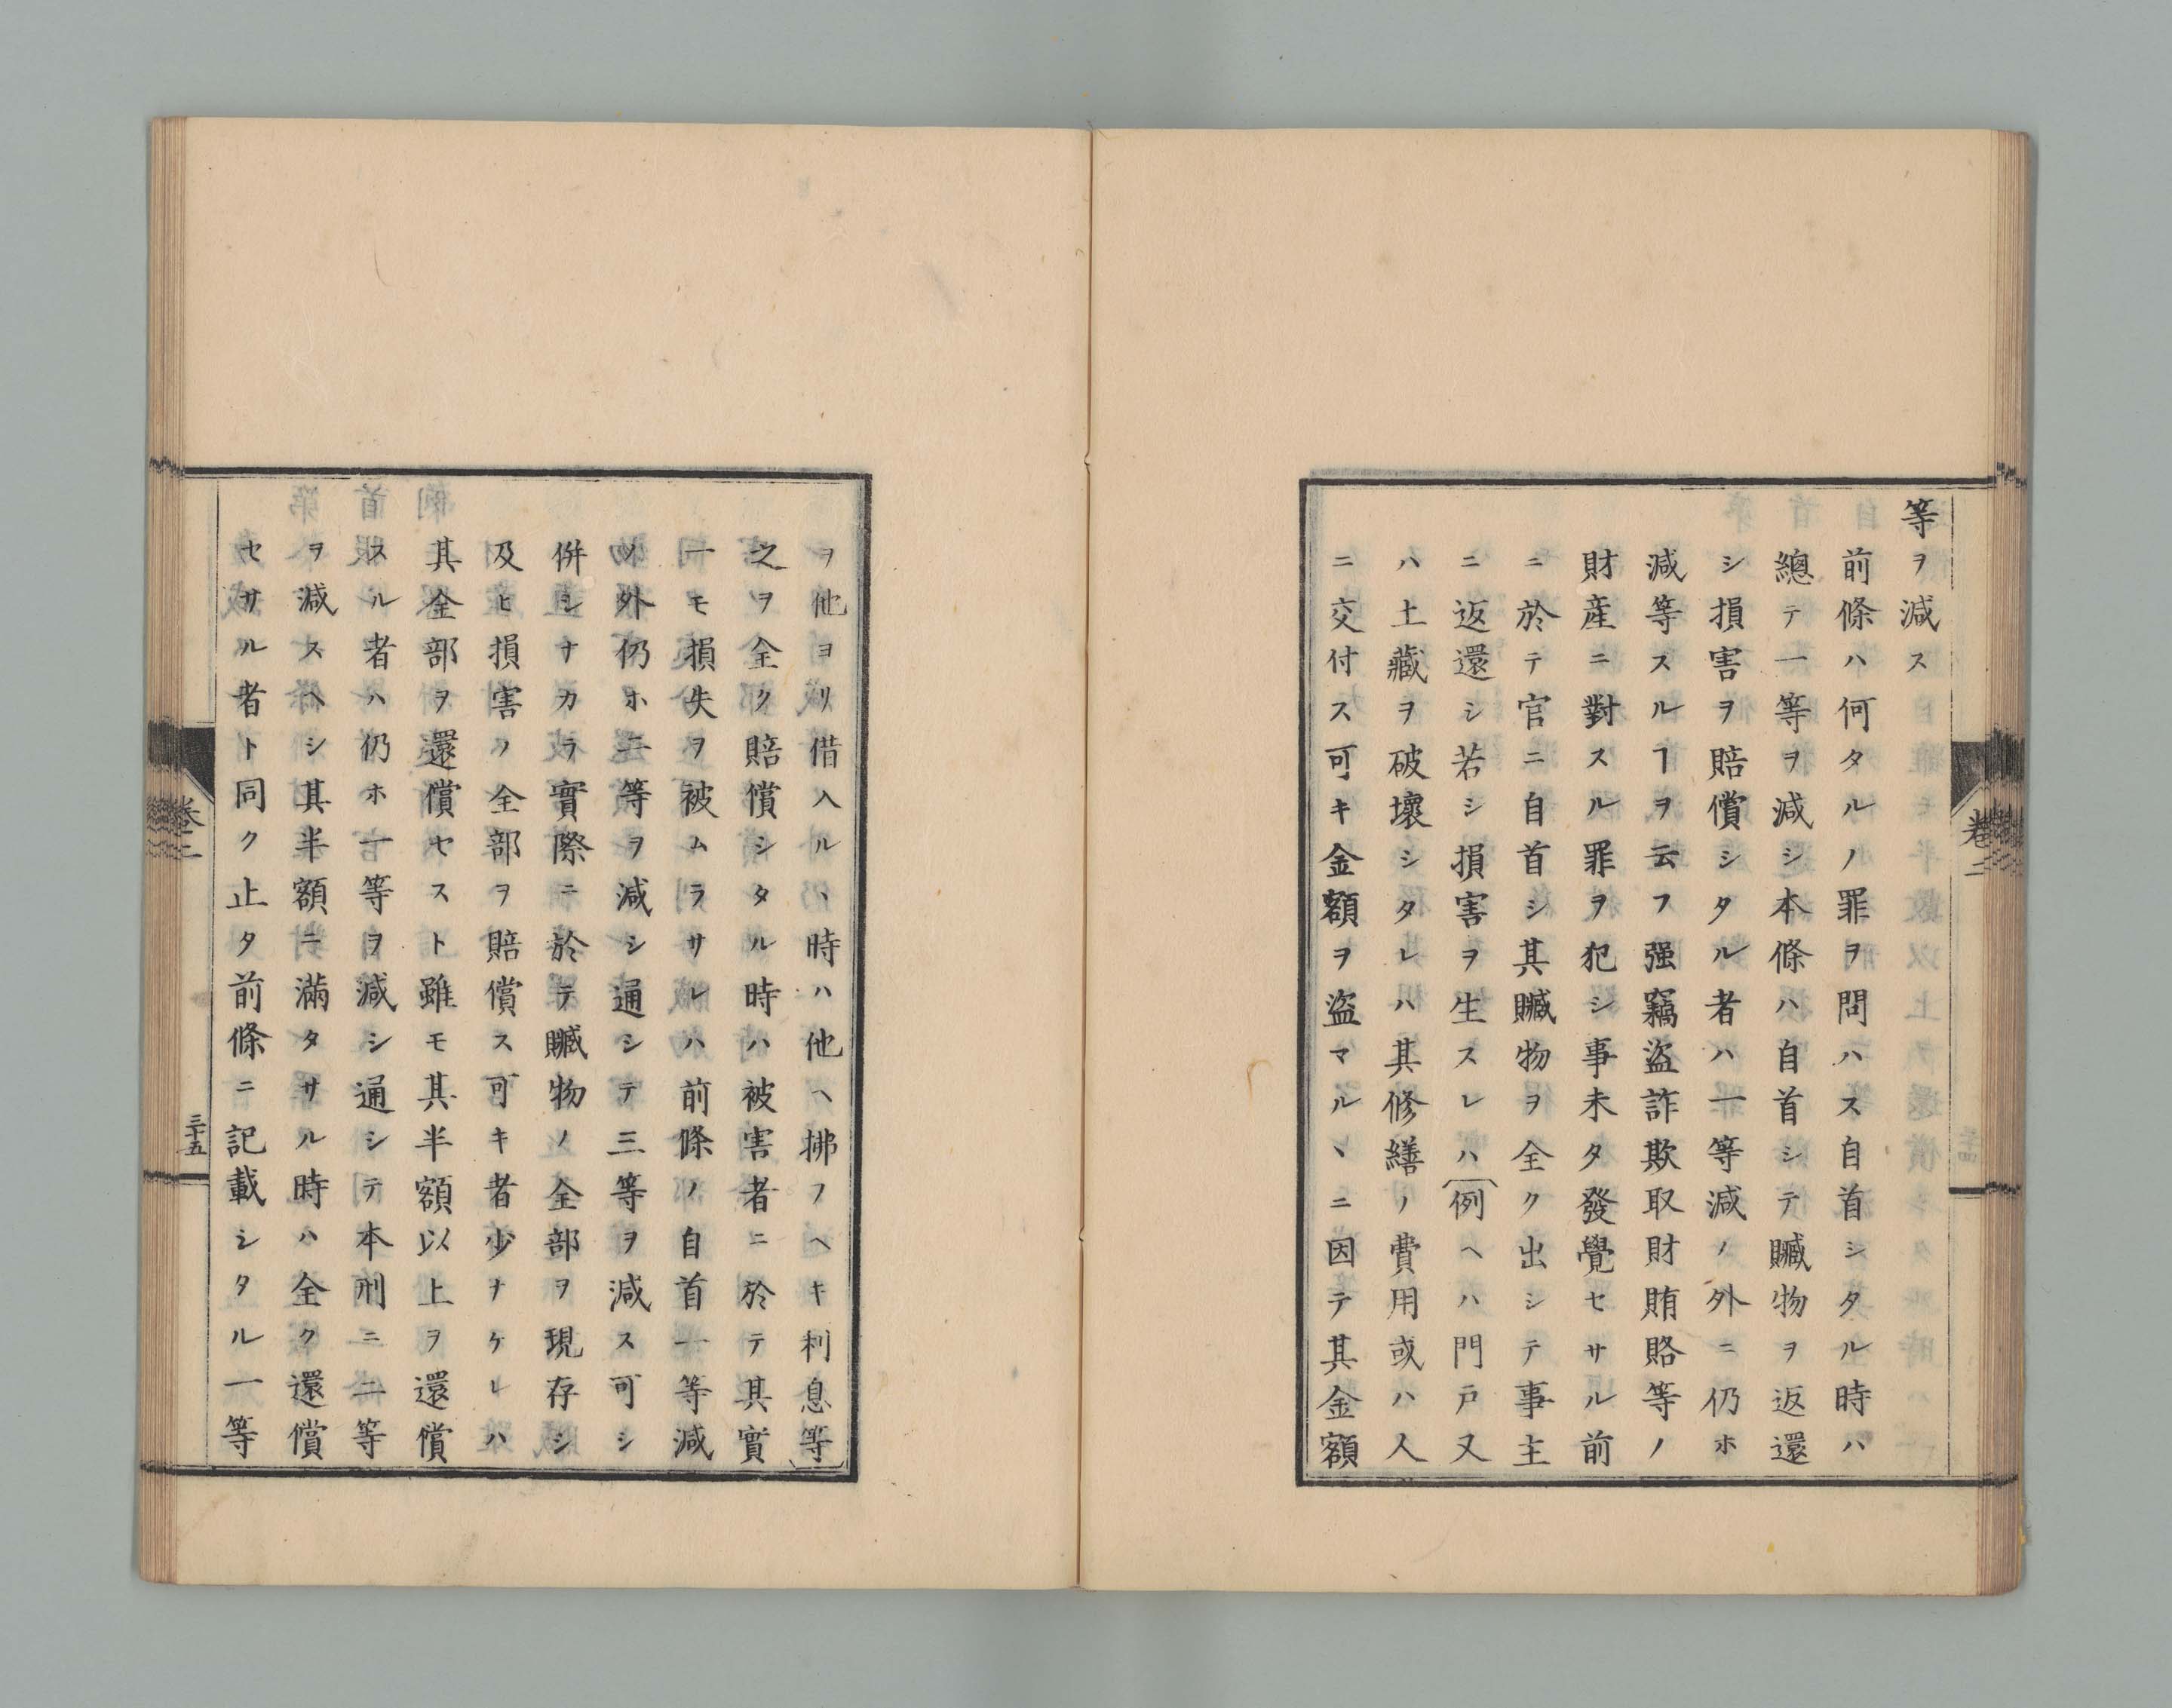 等ヲ減ス
前條ハ何タルノ罪ヲ問ハス自首シタル時ハ
總テ一等ヲ減シ本條ハ自首シテ贓物ヲ返還
シ損害ヲ賠償シタル者ハ一等減ノ外ニ仍ホ
減等スルヿヲ云フ强竊盜詐欺取財賄賂等ノ
財産ニ對スル罪ヲ犯シ事未タ發覺セサル前
ニ於テ官ニ自首シ其贓物ヲ全ク出シテ事主
ニ返還シ若シ損害ヲ生スレハ(例ヘハ門戸又
ハ土藏ヲ破壞シタレハ其修繕ノ費用或ハ人
ニ交付ス可キ金額ヲ盜マルヽニ因テ其金額
卷二
ヲ他ヨリ借入ルヽ時ハ他ヘ拂フヘキ利息等)
之ヲ全ク賠償シタル時ハ被害者ニ於テ其實
一モ損失ヲ被ムラサレハ前條ノ自首一等減
ノ外仍ホ二等ヲ減シ通シテ三等ヲ減ス可シ
併シナカラ實際ニ於テ贓物ノ全部ヲ現存シ
及ヒ損害ノ全部ヲ賠償ス可キ者少ナケレハ
其全部ヲ還償セスト雖モ其半額以上ヲ還償
スル者ハ仍ホ一等ヲ減シ通シテ本刑ニ二等
ヲ減スヘシ其半額ニ滿タサル時ハ全ク還償
セサル者ト同ク止タ前條ニ記載シタル一等
卷二
三十五